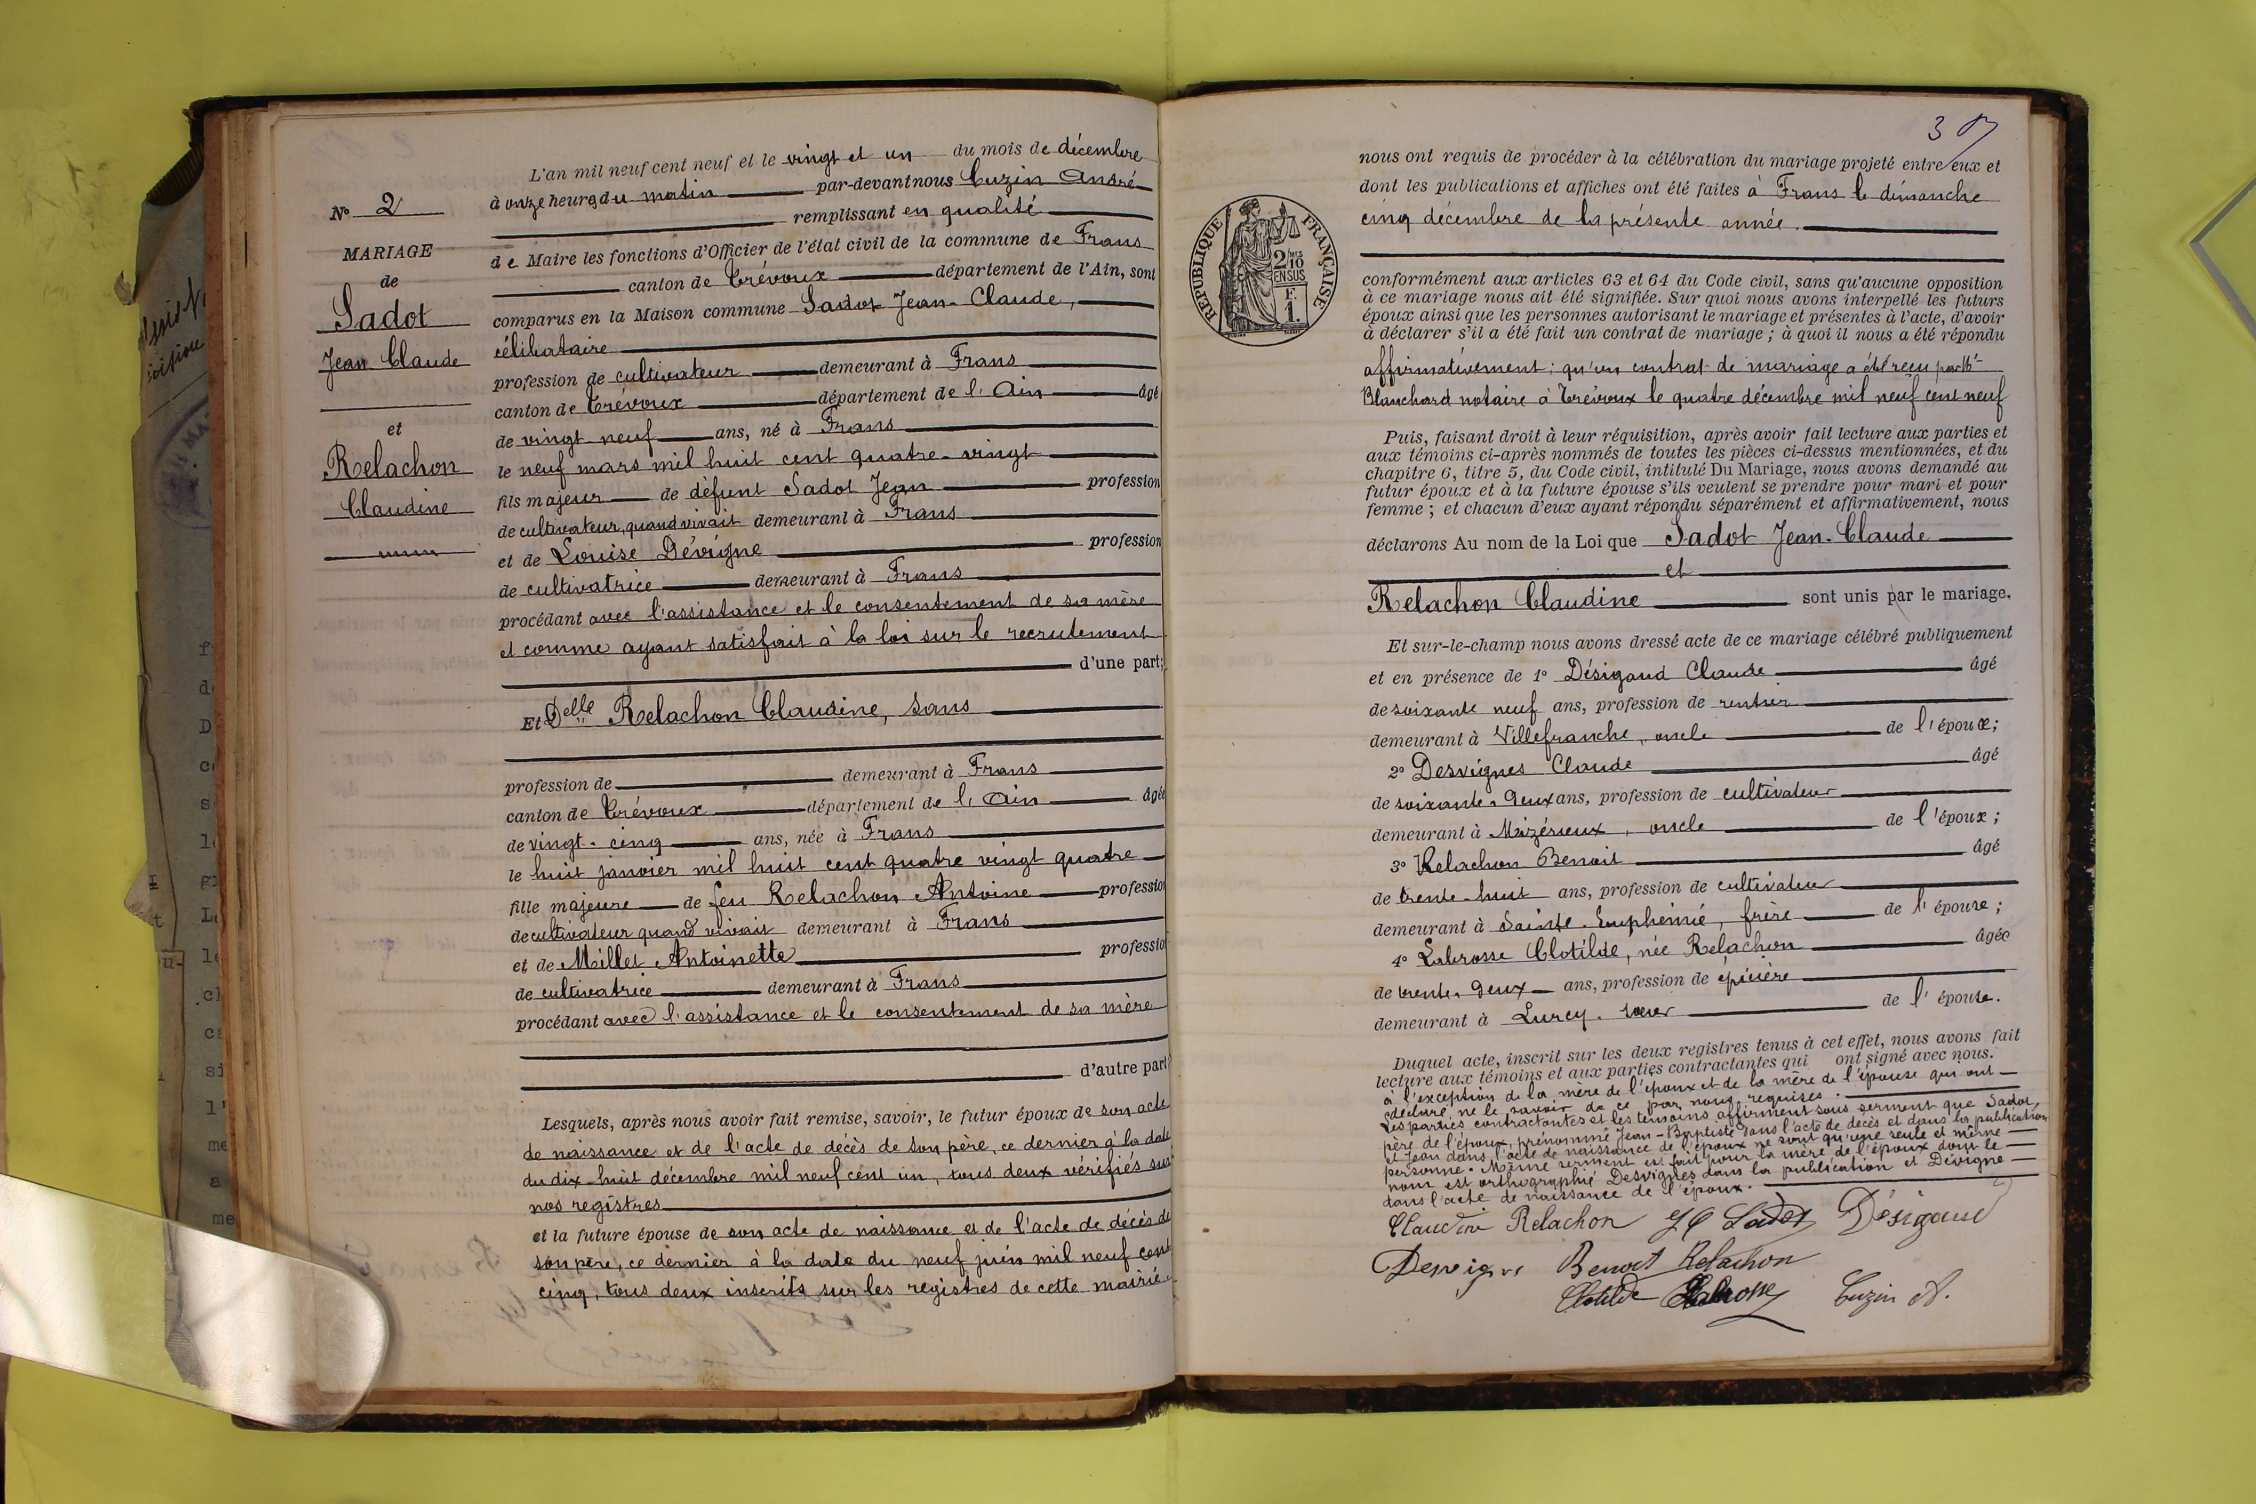 N° 2
MARIAGE
de
Sadot
Jean Claude
et
Relachon
Claudine
L'an mil neuf cent neuf et le vingt et un du mois de décembre
à onze heures du matin par-devant nous Cuzin André
remplissant en qualité
de Maire les fonctions d'Officier de l'état civil de la commune de Frans
canton de Trévoux département de l'Ain, sont
comparus en la Maison commune Sadot Jean-Claude,
célibataire
profession de cultivateur demeurant à Frans
canton de Trévoux département de l'Ain âgé
de vingt neuf ans, né à Frans
le neuf mars mil huit cent quatre-vingt
fils majeur de défunt Sadot Jean profession
de cultivateur, quand vivait demeurant à Frans
et de Louise Dévigne profession
de cultivatrice demeurant à Frans
procédant avec l'assistance et le consentement de sa mère
et comme ayant satisfait à la loi sur le recrutement
d'une part;
Et Delle Relachon Claudine, sans
profession de demeurant à Frans
canton de Trévoux département de l'Ain âgée
de vingt-cinq ans, née à Frans
le huit janvier mil huit cent quatre vingt quatre
fille majeure de feu Relachon Antoine profession
de cultivateur quand vivait demeurant à Frans
et de Millet Antoinette professio
de cultivatrice demeurant à Frans
procédant avec l'assistance et le consentement de sa mère
d'autre part
Lesquels, après nous avoir fait remise, savoir, le futur époux de son acte
de naissance et de l'acte de décès de son père, ce dernier à la date
du dix-huit décembre mil neuf cent un, tous deux vérifiés sur
nos registres
et la future épouse de son acte de naissance et de l'acte de décès de
son père, ce dernier à la date du neuf juin mil neuf cent
cinq, tous deux inscrits sur les registres de cette mairie
RÉPUBLIQUE FRANÇAISE
2/10
EN SUS
F.
1.
nous ont requis de procéder à la célébration du mariage projeté entre eux et
dont les publications et affiches ont été faites à Frans le dimanche
cinq décembre de la présente année.
conformément aux articles 63 et 64 du Code civil, sans qu'aucune opposition
à ce mariage nous ait été signifiée. Sur quoi nous avons interpellé les futurs
époux ainsi que les personnes autorisant le mariage et présentes à l'acte, d'avoir
à déclarer s'il a été fait un contrat de mariage ; à quoi il nous a été répondu
affirmativement; qu'un contrat de mariage a été reçu par Me
Blanchard notaire à Trévoux le quatre décembre mil neuf cent neuf
Puis, faisant droit à leur réquisition, après avoir fait lecture aux parties et
aux témoins ci-après nommés de toutes les pièces ci-dessus mentionnées, et du
chapitre 6, titre 5, du Code civil, intitulé Du Mariage, nous avons demandé au
futur époux et à la future épouse s'ils veulent se prendre pour mari et pour
femme ; et chacun d'eux ayant répondu séparément et affirmativement, nous
déclarons Au nom de la Loi que Sadot Jean-Claude
et
Relachon Claudine sont unis par le mariage.
Et sur-le-champ nous avons dressé acte de ce mariage célébré publiquement
et en présence de 1° Désigaud Claude âgé
de soixante neuf ans, profession de rentier
demeurant à Villefranche, oncle de l'époux;
2° Desvignes Claude âgé
de soixante-deux ans, profession de cultivateur
demeurant à Mizérieux, oncle de l'époux;
3° Relachon Benoit âgé
de trente-huit ans, profession de cultivateur
demeurant à Sainte-Euphémie, frère de l'épouse;
4° Labrosse Clotilde, née Relachon âgée
de trente-deux ans, profession de épicière
demeurant à Lurcy. sœur de l'épouse.
Duquel acte, inscrit sur les deux registres tenus à cet effet, nous avons fait
lecture aux témoins et aux parties contractantes qui ont signé avec nous.
à l'exception de la mère de l'époux et de la mère de l'épouse qui ont
déclaré ne le savoir de ce par nous requises.
Les parties contractantes et les témoins affirment sous serment que Sadot,
père de l'époux, prénommé Jean-Baptiste dans l'acte de décès et dans la publication
et Jean dans l'acte de naissance de l'époux ne sont qu'une seule et même
personne. Même serment est fait pour la mère de l'époux dont le
nom est orthographié Desvignes dans la publication et Dévigne
dans l'acte de naissance de l'époux.
Claudine Relachon JC Sadot Désigaud
Desvignes Benoit Relachon
Clotilde Labrosse Cuzin A.